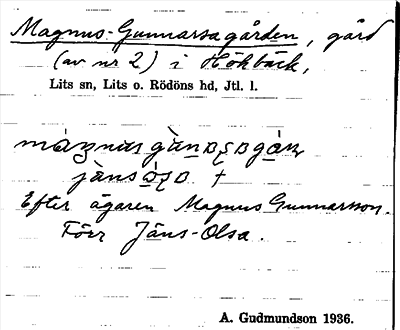 Magnus-Gunnarsagården, gård
(av nr 2) i Hökbäck,
Lits sn, Lits o. Rödöns hd, Jtl. l.
†
Efter ägaren Magnus Gunnarsson.
Förr Jäns-Olsa.
A. Gudmundson 1936.